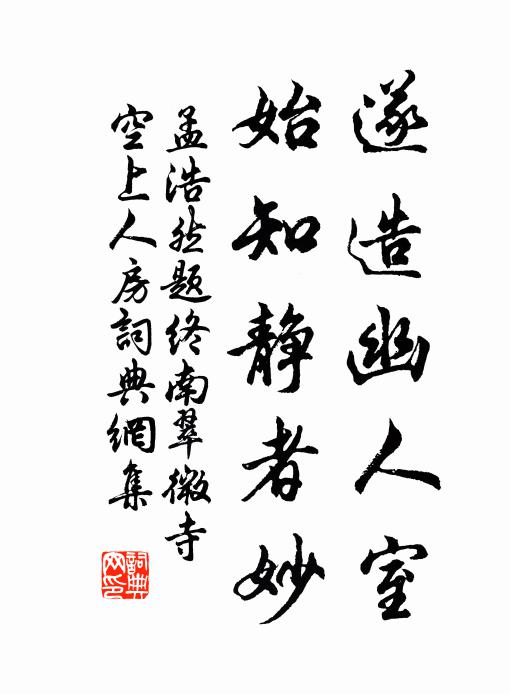 遂造幽人室
始知靜者妙
孟浩然題終南翠微寺
空上人房詞典網集
詞典网印